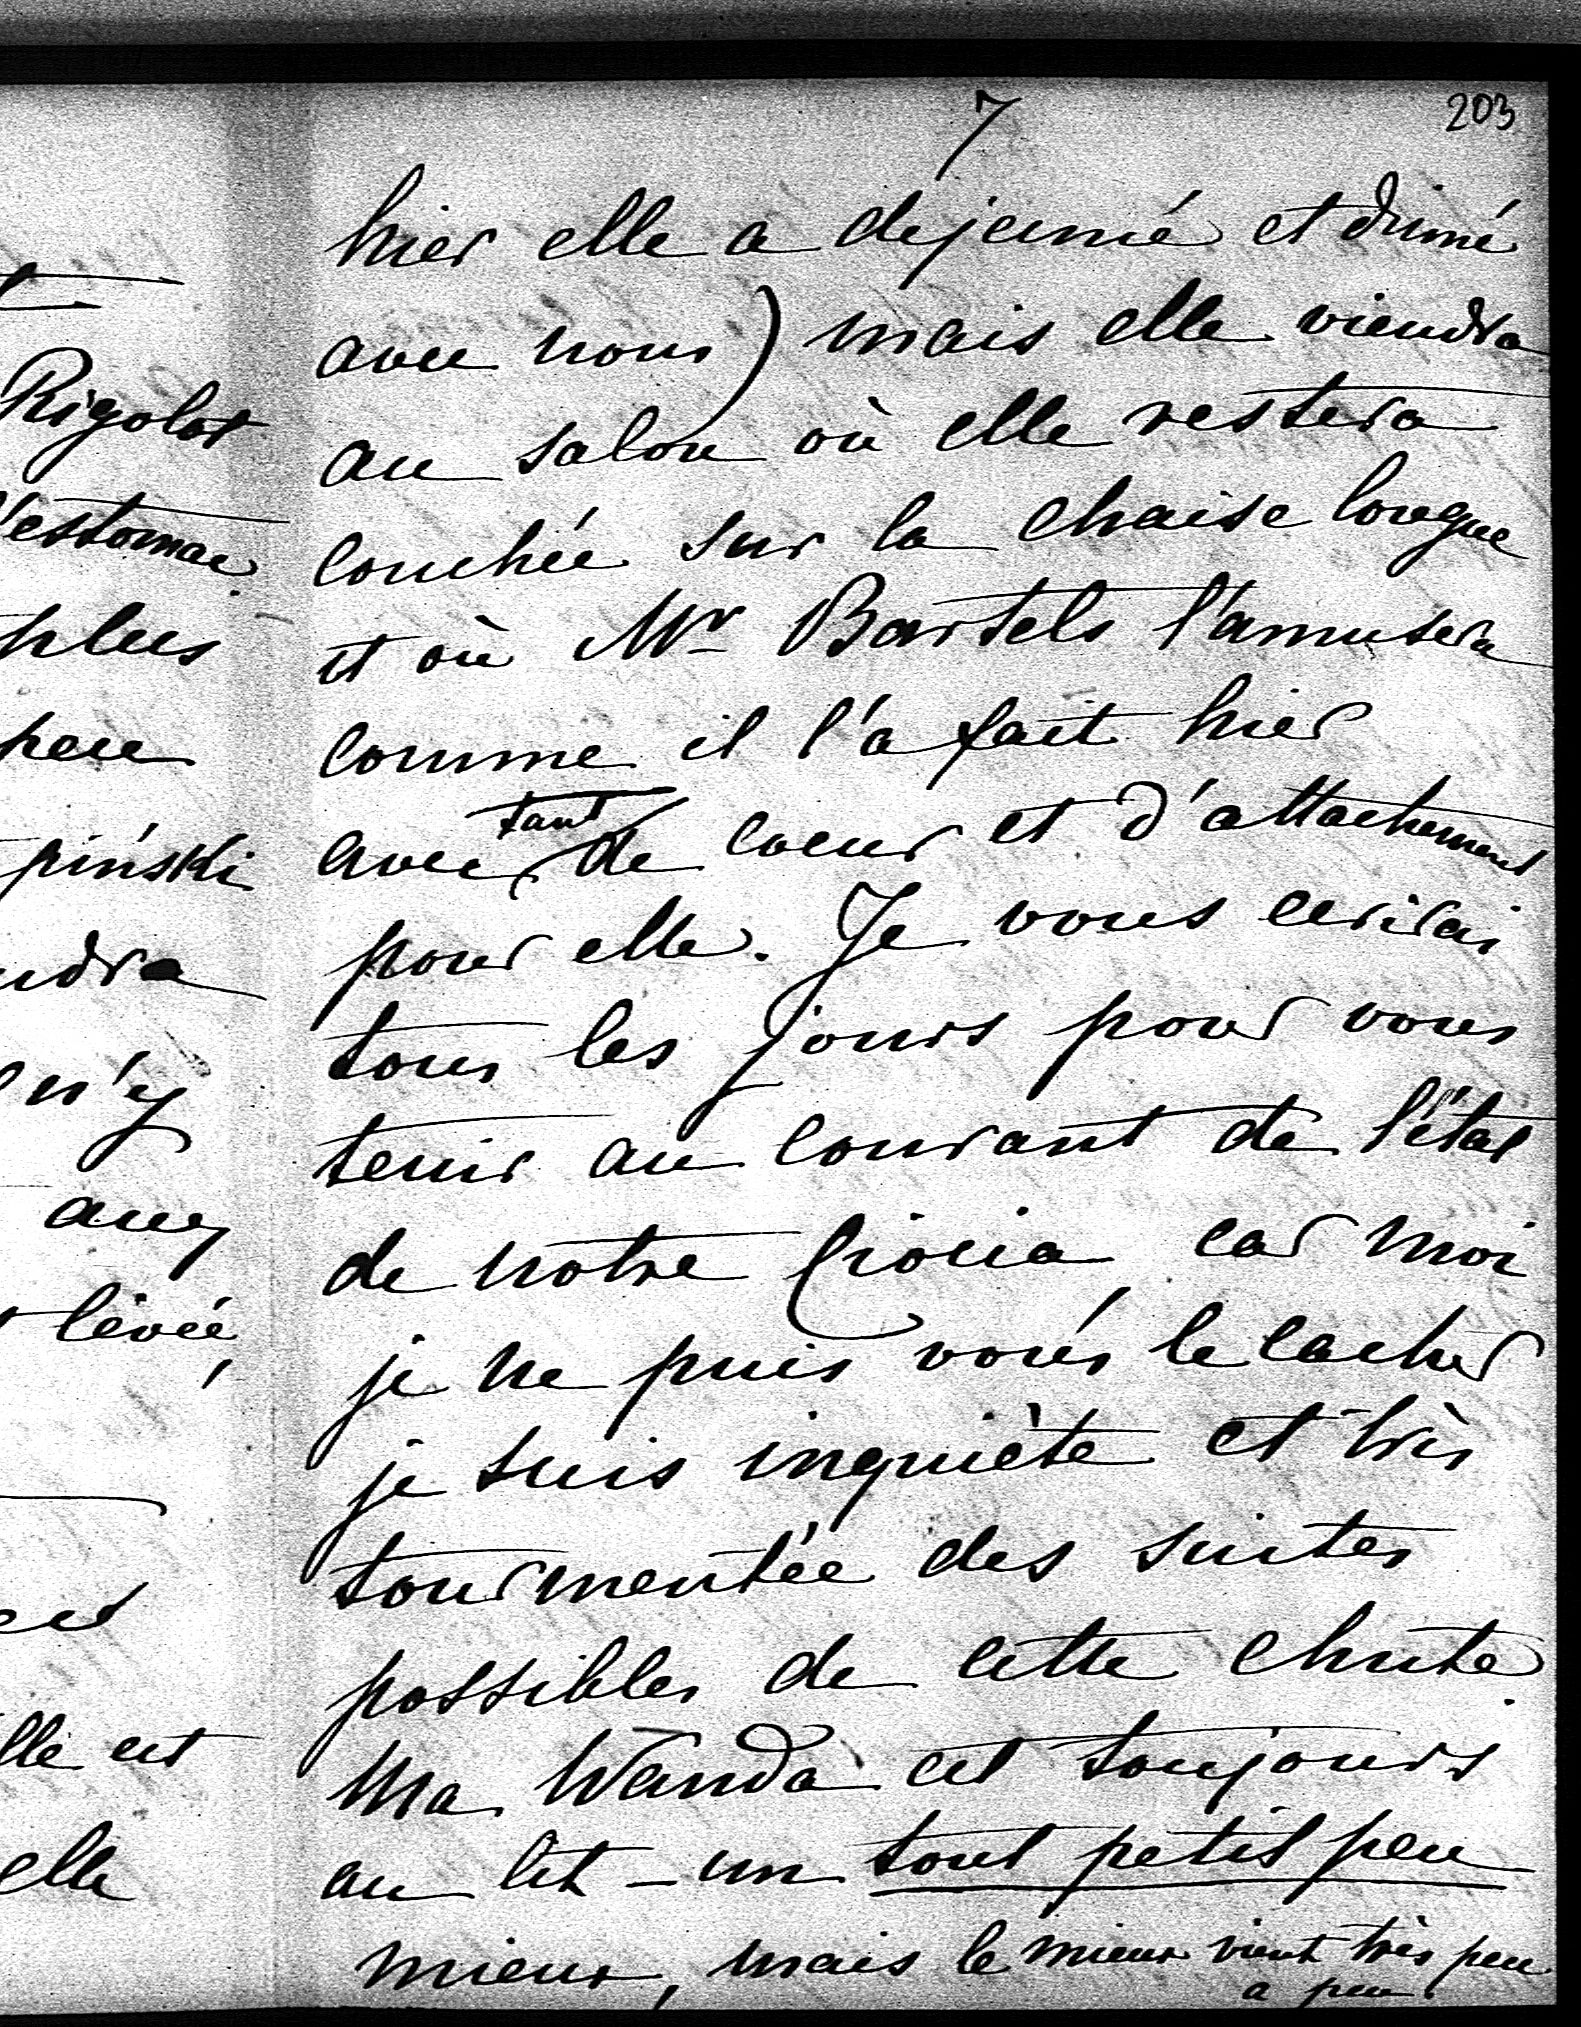 203
7
Rigolot
l'estomac.
plus
peu
piński
ndra
n'y
avez
levée,
lle est
elle
hier elle a dejeuné et diné
avec nous) mais elle viendra
au salon où elle restera
couchée sur la chaise longue
et où Mr Bartels l'amusera
comme il l'a fait hier
avec tant de coeur et d'attachement
pour elle. Je vous ecrirai
tous les jours pour vous
tenir au courant de l'état
de notre Ciocia car moi
je ne puis vous le cacher
je suis inquiète et très
tourmentée des suites
possibles de cette chute.
Ma Wanda est toujours
au lit – un tout petit peu
mieux, mais le mieux vient très peu
a peu.